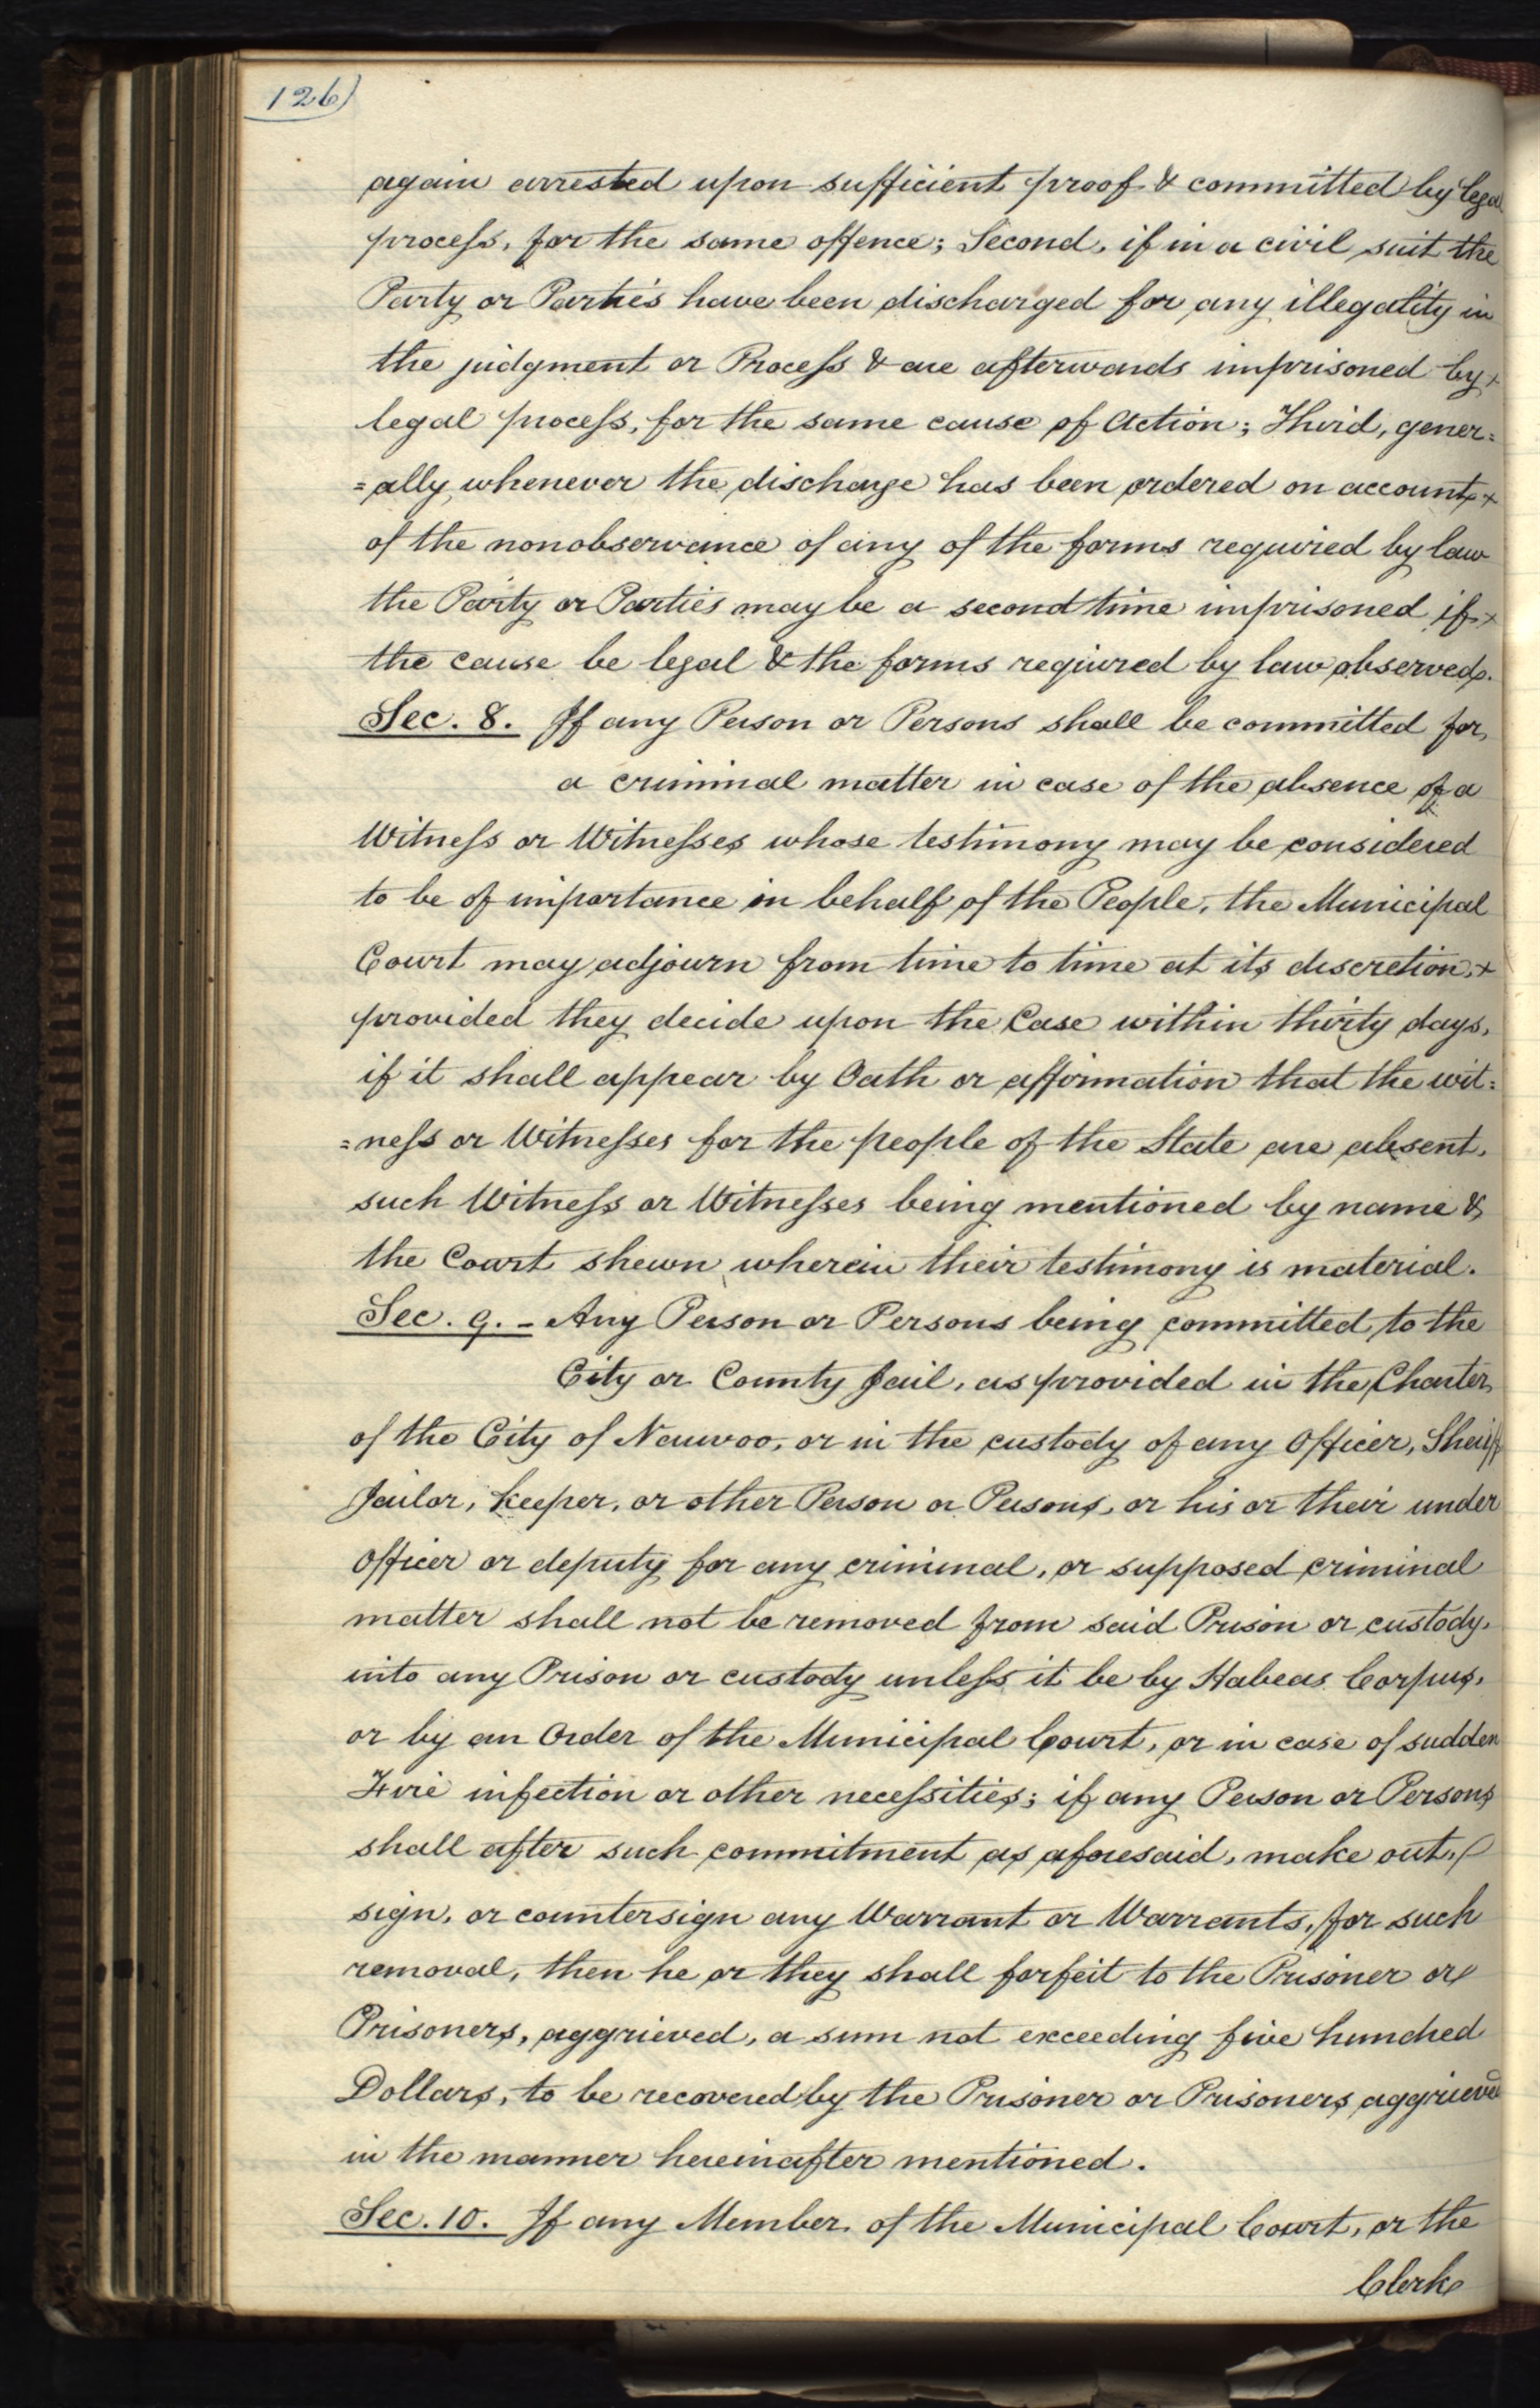 126)
again arrested upon sufficient proof & committed by legal
process, for the same offence; Second, if in a civil suit the
Party or Parties have been discharged for any illegality in
the judgment or Process & are afterwards imprisoned by
legal process, for the same cause of Action; Third, gener=
=ally, whenever the discharge has been ordered on account
of the nonobservance of any of the forms required by law
the Party or Parties may be a second time imprisoned if
the cause be legal & the forms required by law observed.
Sec. 8. If any Person or Persons shall be committed for
a criminal matter in case of the absence of a
Witness or Witnesses whose testimony may be considered
to be of importance in behalf of the People, the Municipal
Court may adjourn from time to time at its discretion,
provided they decide upon the Case within thirty days,
if it shall appear by Oath or affirmation that the wit=
=ness or Witnesses for the people of the State are absent,
such Witness or Witnesses being mentioned by name &
the Court shewn wherein their testimony is material.
Sec. 9. - Any Person or Persons being committed to the
City or County Jail, as provided in the Charter
of the City of Nauvoo, or in the custody of any Officer, Sheriff
Jailor, keeper, or other Person or Persons, or his or their under
Officer or deputy for any criminal, or supposed criminal
matter shall not be removed from said Prison or custody,
into any Prison or custody unless it be by Habeas Corpus,
or by an Order of the Municipal Court, or in case of sudden
Fire infection or other necessities; if any Person or Persons
shall after such commitment as aforesaid, make out,
sign, or countersign any Warrant or Warrants, for such
removal, then he or they shall forfeit to the Prisoner or
Prisoners, aggrieved, a sum not exceeding five hundred
Dollars, to be recovered by the Prisoner or Prisoners aggrieved
in the manner hereinafter mentioned.
Sec. 10. If any Member of the Municipal Court, or the
Clerk